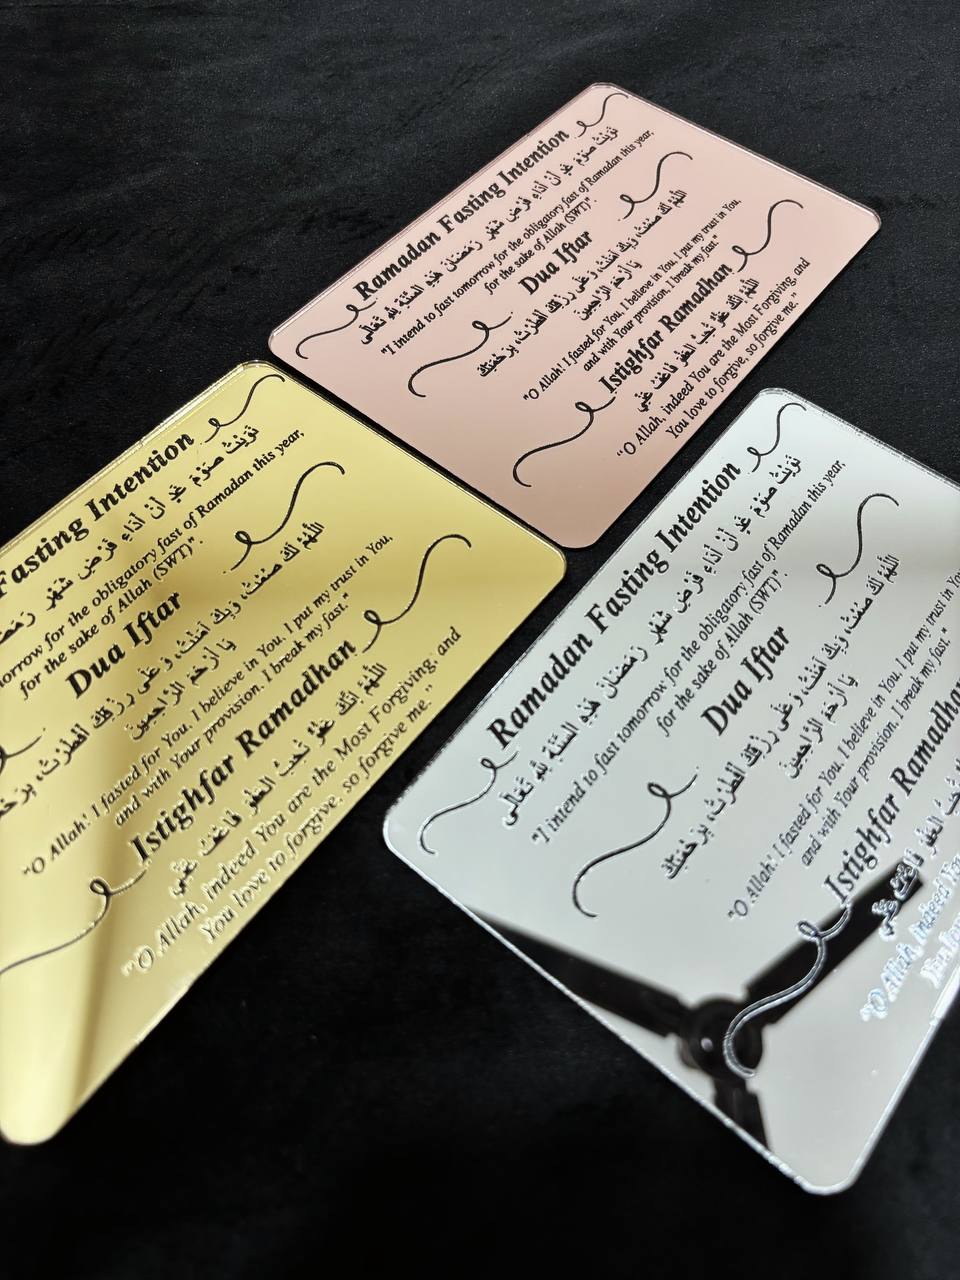 Ramadan Fasting Intention
نَوَيْتُ صَوْمَ غَدٍ اَنْ اَدَاءِ فَرْضِ شَهْرِ رَمَضَانَ هَذِهِ السَّنَةِ لِلهِ تَعَالَى
"I intend to fast tomorrow for the obligatory fast of Ramadan this year,
for the sake of Allah (SWT)".
Dua Iftar
اَللّهُمَّ لَكَ صُمْتُ، وَبِكَ آمَنْتُ، وَعَلَى رِزْقِكَ أَفْطَرْتُ، بِرَحْمَتِكَ
يَا أَرْحَمَ الرَّاحِمِينَ
"O Allah! I fasted for You, I believe in You, I put my trust in You,
and with Your provision, I break my fast."
Istighfar Ramadhan
اللَّهُمَّ إِنَّكَ عَفُوٌّ تُحِبُّ الْعَفْوَ فَاعْفُ عَنِّي
"O Allah, indeed You are the Most Forgiving, and
You love to forgive, so forgive me."
Fasting Intention
نَوَيْتُ صَوْمَ غَدٍ اَنْ اَدَاءِ فَرْضِ شَهْرِ
for the obligatory fast of Ramadan this year,
for the sake of Allah (SWT)".
Dua Iftar
اَللّهُمَّ لَكَ صُمْتُ، وَبِكَ آمَنْتُ، وَعَلَى رِزْقِكَ أَفْطَرْتُ،
يَا أَرْحَمَ الرَّاحِمِينَ
"O Allah! I fasted for You, I believe in You, I put my trust in You,
and with Your provision, I break my fast."
Istighfar Ramadhan
اللَّهُمَّ إِنَّكَ عَفُوٌّ تُحِبُّ الْعَفْوَ فَاعْفُ عَنِّي
"O Allah, indeed You are the Most Forgiving, and
You love to forgive, so forgive me."
Ramadan Fasting Intention
نَوَيْتُ صَوْمَ غَدٍ اَنْ اَدَاءِ فَرْضِ شَهْرِ رَمَضَانَ هَذِهِ السَّنَةِ لِلهِ تَعَالَى
"I intend to fast tomorrow for the obligatory fast of Ramadan this year,
for the sake of Allah (SWT)".
Dua Iftar
اَللّهُمَّ لَكَ صُمْتُ، وَبِكَ آمَنْتُ، وَعَلَى رِزْقِكَ أَفْطَرْتُ، بِرَحْمَتِكَ
يَا أَرْحَمَ الرَّاحِمِينَ
"O Allah! I fasted for You, I believe in You, I put my trust in
and with Your provision, I break my fast."
Istighfar Ramadhan
الْعَفْوَ فَاعْفُ عَنِّي
"O Allah, indeed